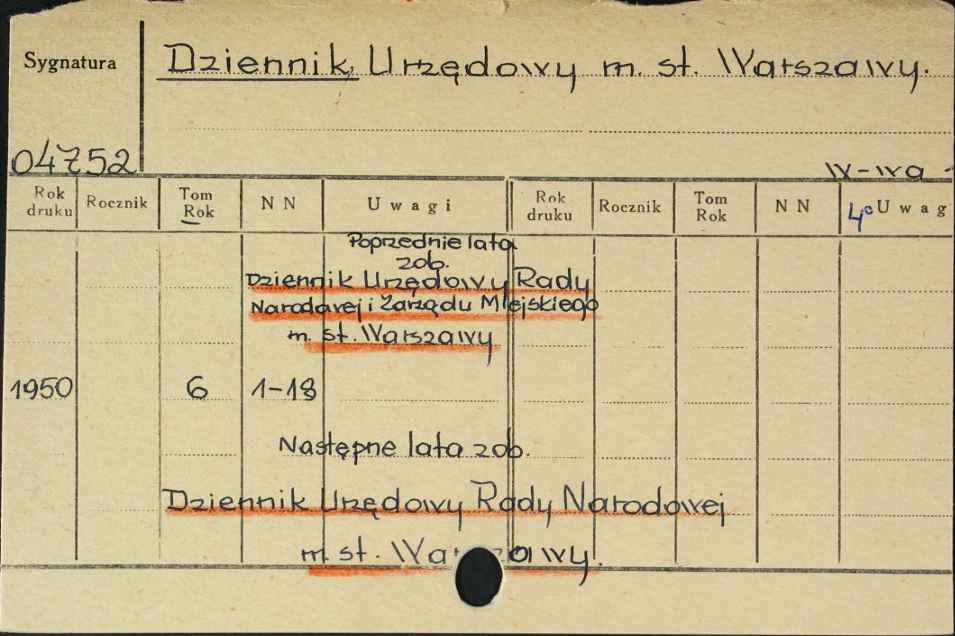 Sygnatura
Dziennik Urzędowy m. st. Warszawy.
04752
W-wa -
Rok druku Rocznik Tom Rok N N Uwagi Rok druku Rocznik Tom Rok N N 4° Uwag
Poprzednie lata
zob.
Dziennik Urzędowy Rady
Narodowej i Zarządu Miejskiego
m. st. Warszawy
1950 6 1-18
Następne lata zob.
Dziennik Urzędowy Rady Narodowej
m. st. Warszawy.